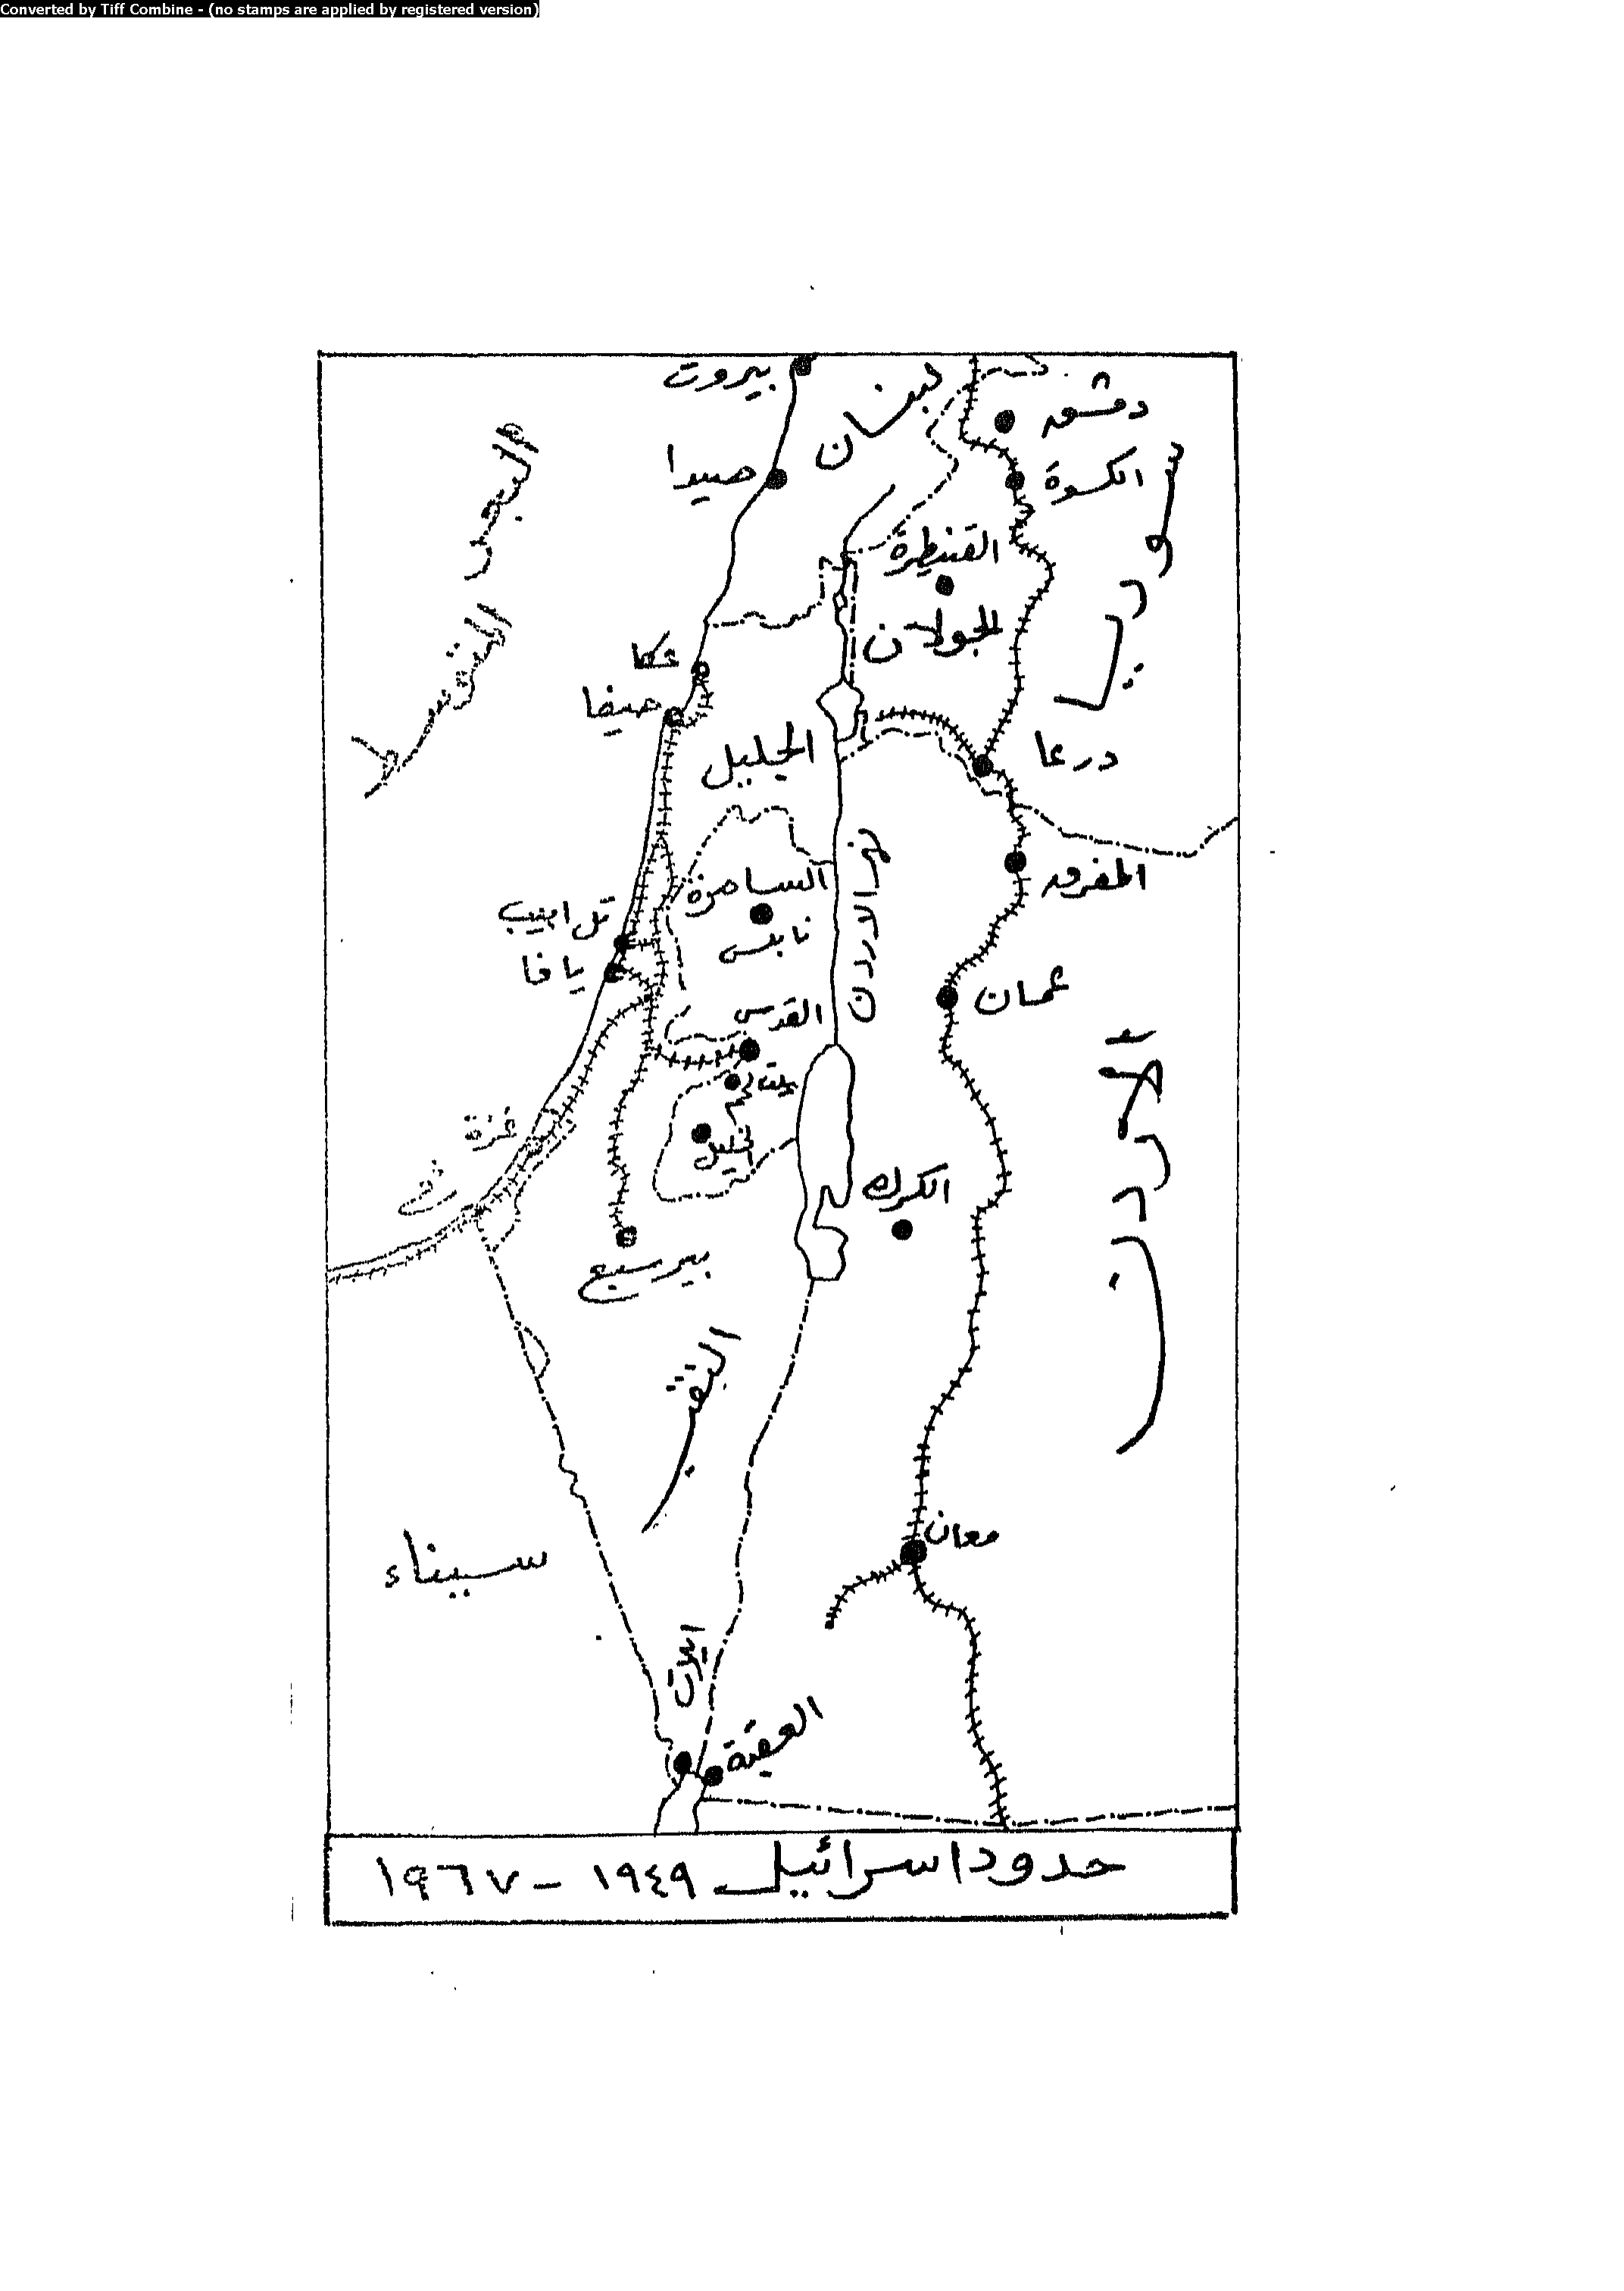 Converted by Tiff Combine - (no stamps are applied by registered version)
بيروت
لبنان
دمشق
صيدا
الكسوة
سوريا
البحر
المتوسط
القنيطرة
الجولان
عكا
حيفا
الجليل
درعا
السامرة
نابلس
المفرق
نهر الاردن
تل ابيب
يافا
عمان
القدس
بيت لحم
الخليل
غزة
رفح
الكرك
الاردن
بير سبع
النقب
سيناء
معان
ايلات
العقبة
حدود اسرائيل ١٩٤٩ - ١٩٦٧